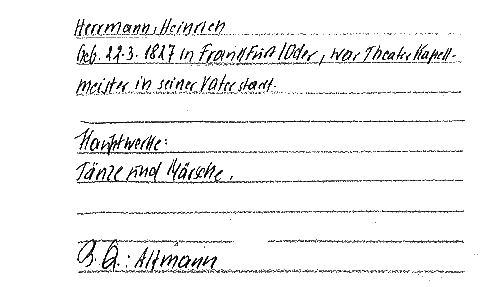 Herrmann, Heinrich
Geb. 22.3.1827 in Frankfurt/Oder, war Theaterkapell-
meister in seiner Vaterstadt.
Hauptwerke:
Tänze und Märsche.
B. Q.: Altmann